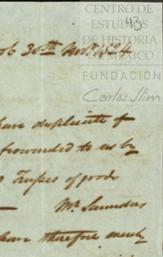 CENTRO DE
ESTUDIOS
DE HISTORIA
DE MÉXICO
FUNDACIÓN
Carlos Slim
43
30th Novr. 1824
have duplicate of
forwarded to us by
of good
Mr. Saunders
have therefore merely